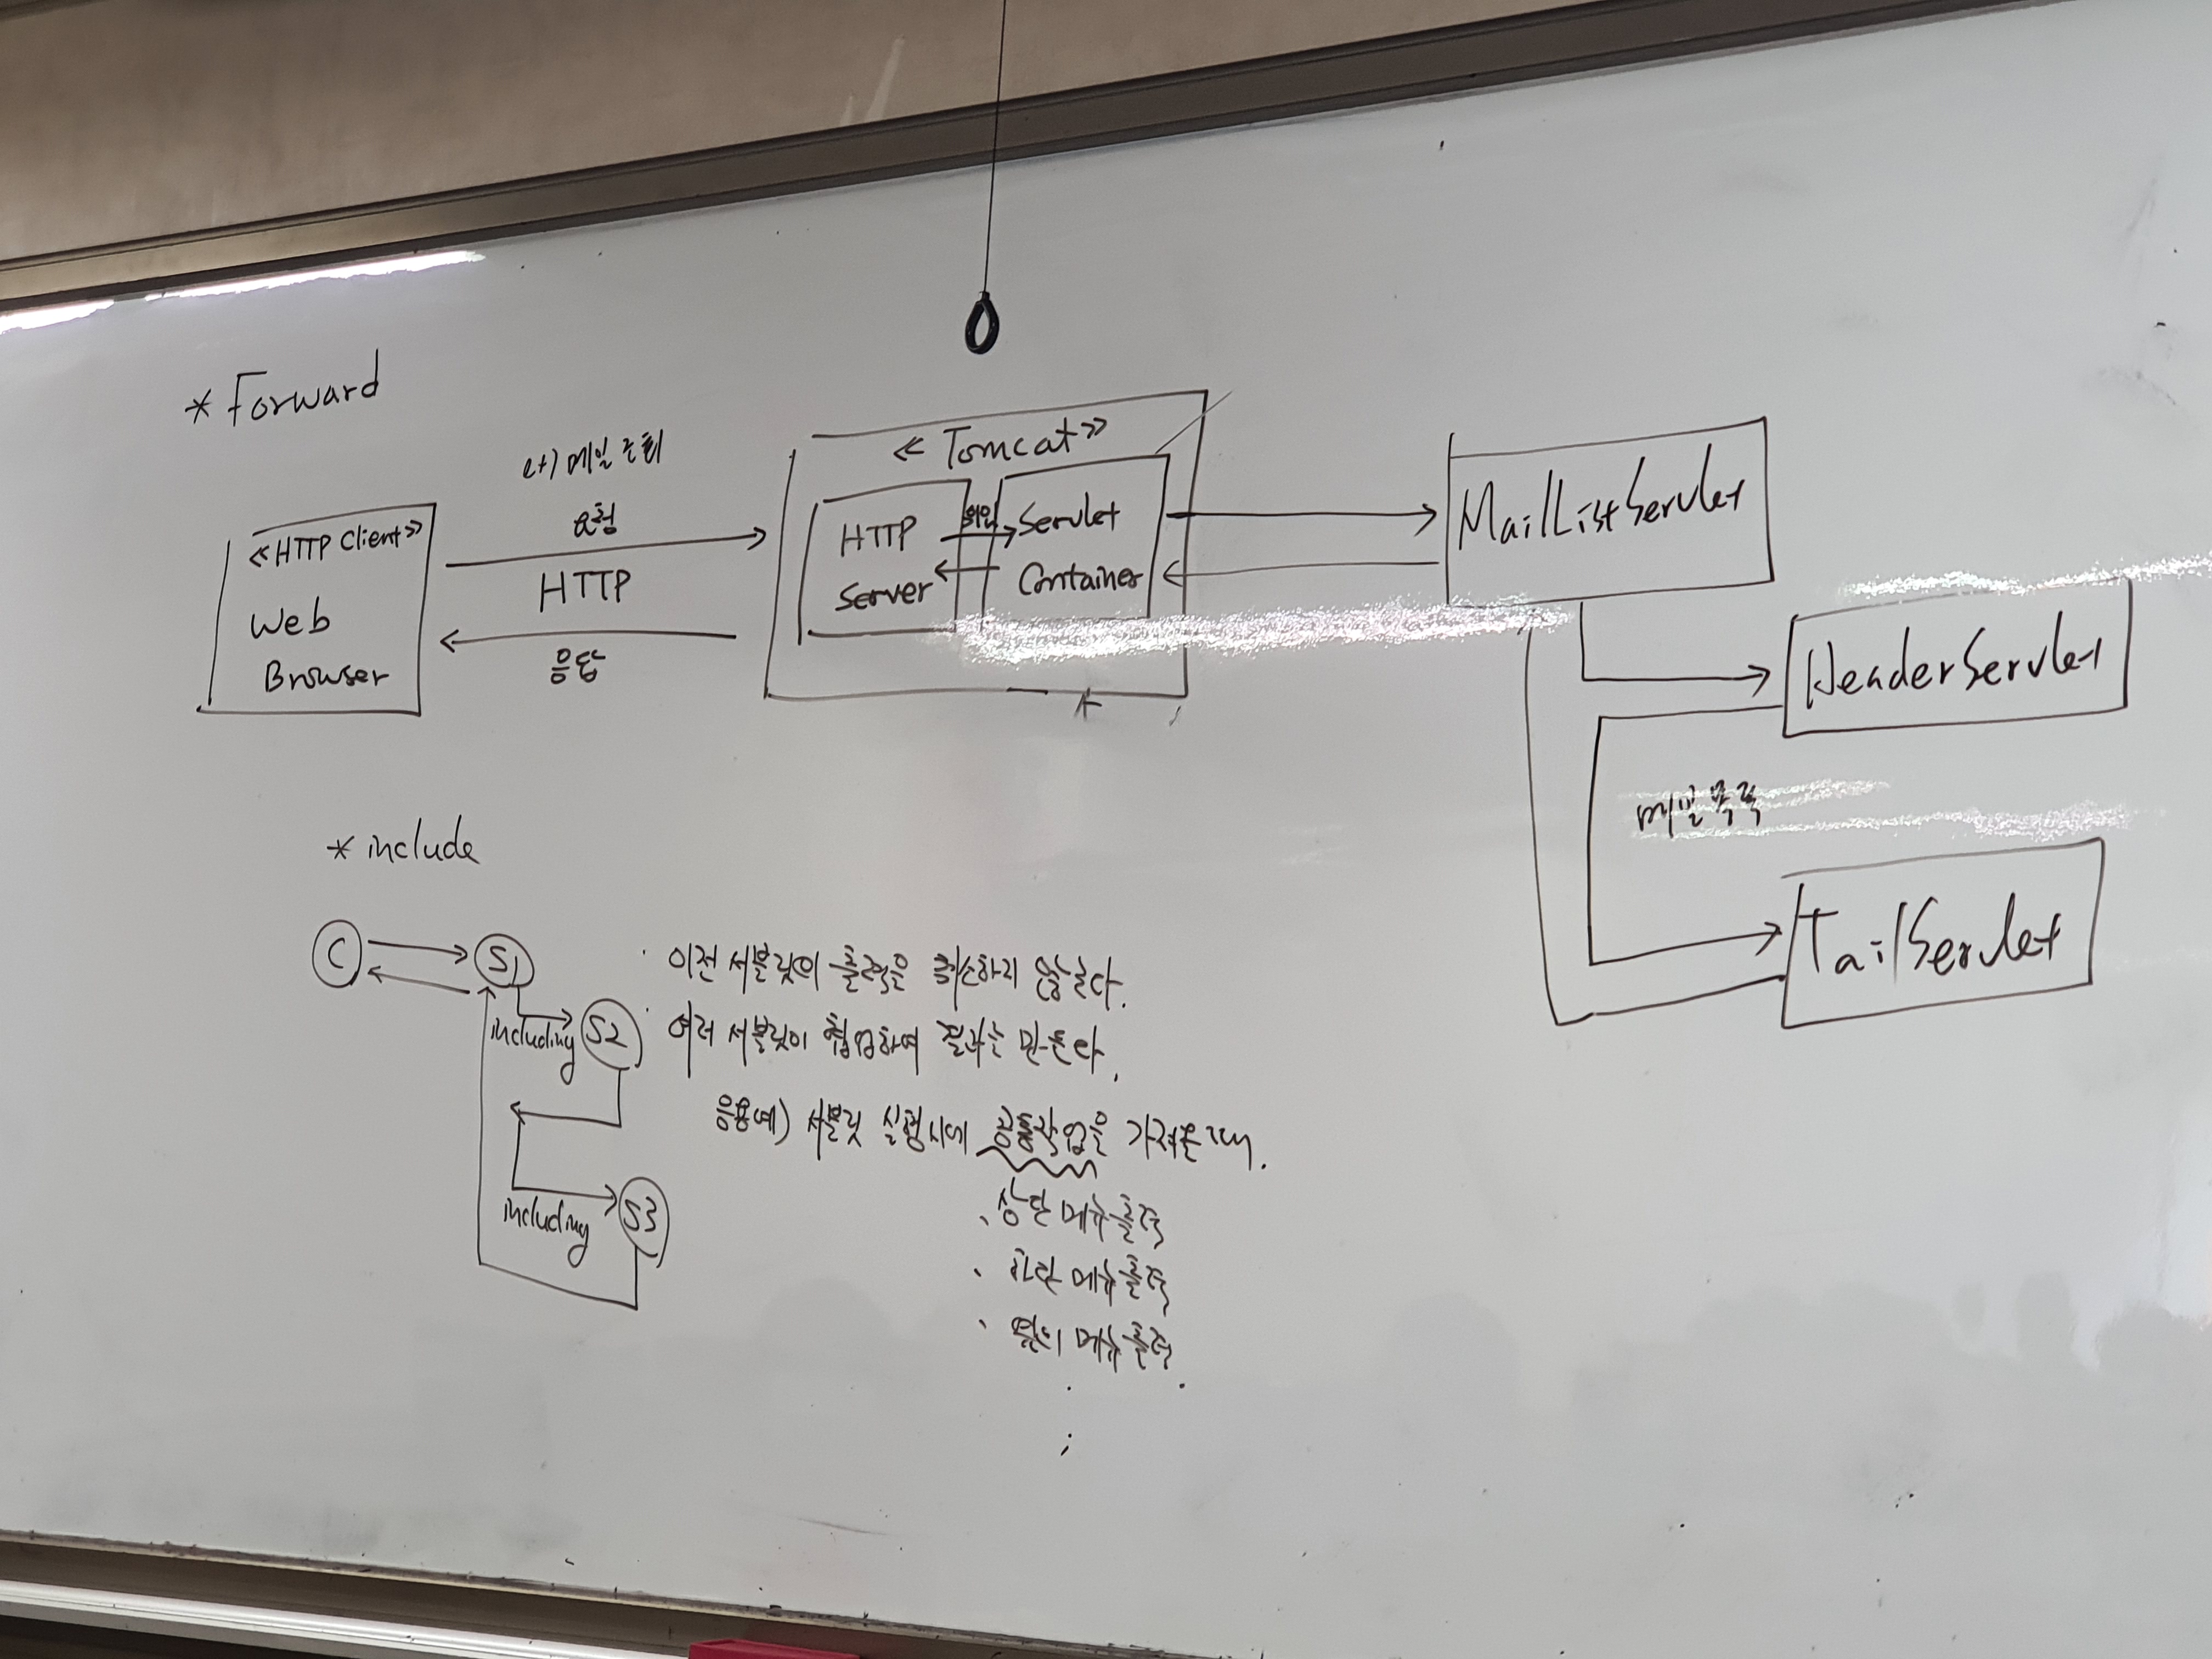 * Forward
ex) 메일 조회
요청
HTTP
응답
<<HTTP Client>>
Web
Browser
<< Tomcat >>
HTTP
Server
위임
Servlet
Container
MailListServlet
HeaderServlet
메일목록
TailServlet
* include
C
S1
including
S2
including
S3
· 이전 서블릿의 출력을 취소하지 않는다.
· 여러 서블릿이 협업하여 결과를 만든다.
응용예) 서블릿 실행시에 공통작업을 가져올 때.
· 상단 메뉴 출력
· 하단 메뉴 출력
· 메뉴 출력